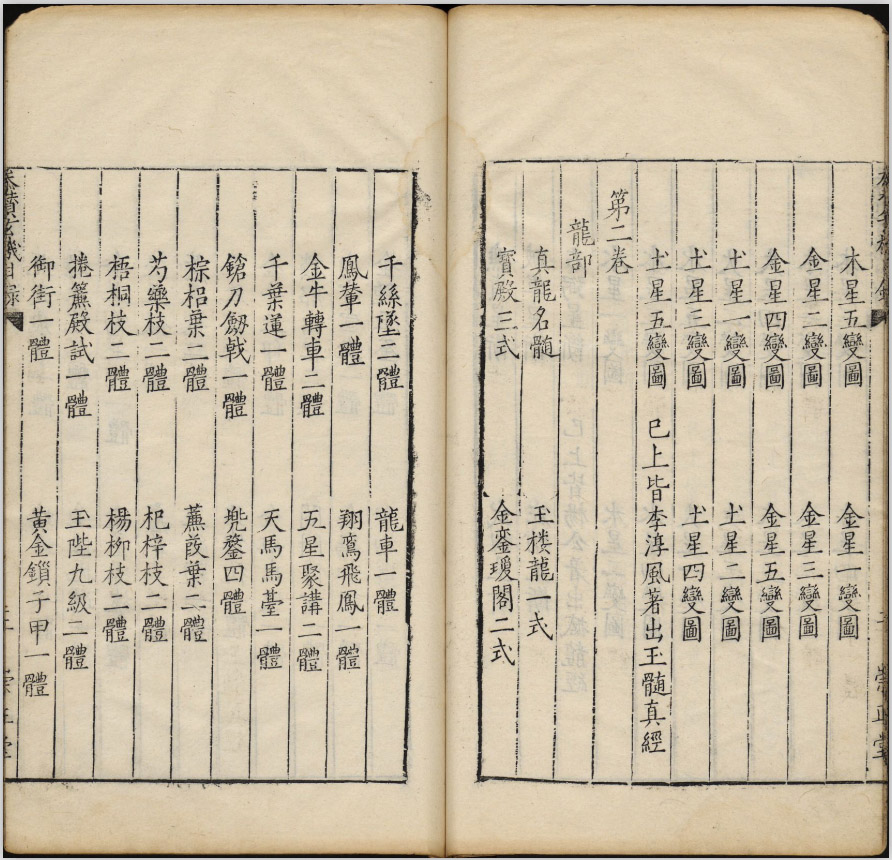 木星五變圖 金星一變圖
金星二變圖 金星三變圖
金星四變圖 金星五變圖
土星一變圖 土星二變圖
土星三變圖 土星四變圖
土星五變圖 已上皆李淳風著出玉髓真經
第二卷
龍部
真龍名髓 玉楼龍一式
寳殿三式 金鑾璦閣二式
千絲墜二體 龍車一體
鳳輦一體 翔鸞飛鳳一體
金牛轉車二體 五星聚講二體
千葉蓮一體 天馬馬臺一體
鎗刀劔戟一體 兠鍪四體
棕梠葉二體 蕉葮葉二體
芍藥枝二體 杞梓枝二體
梧桐枝二體 楊柳枝二體
捲簾殿試一體 玉陛九級二體
御街一體 黃金鎖子甲一體
玄機目録
崇正堂